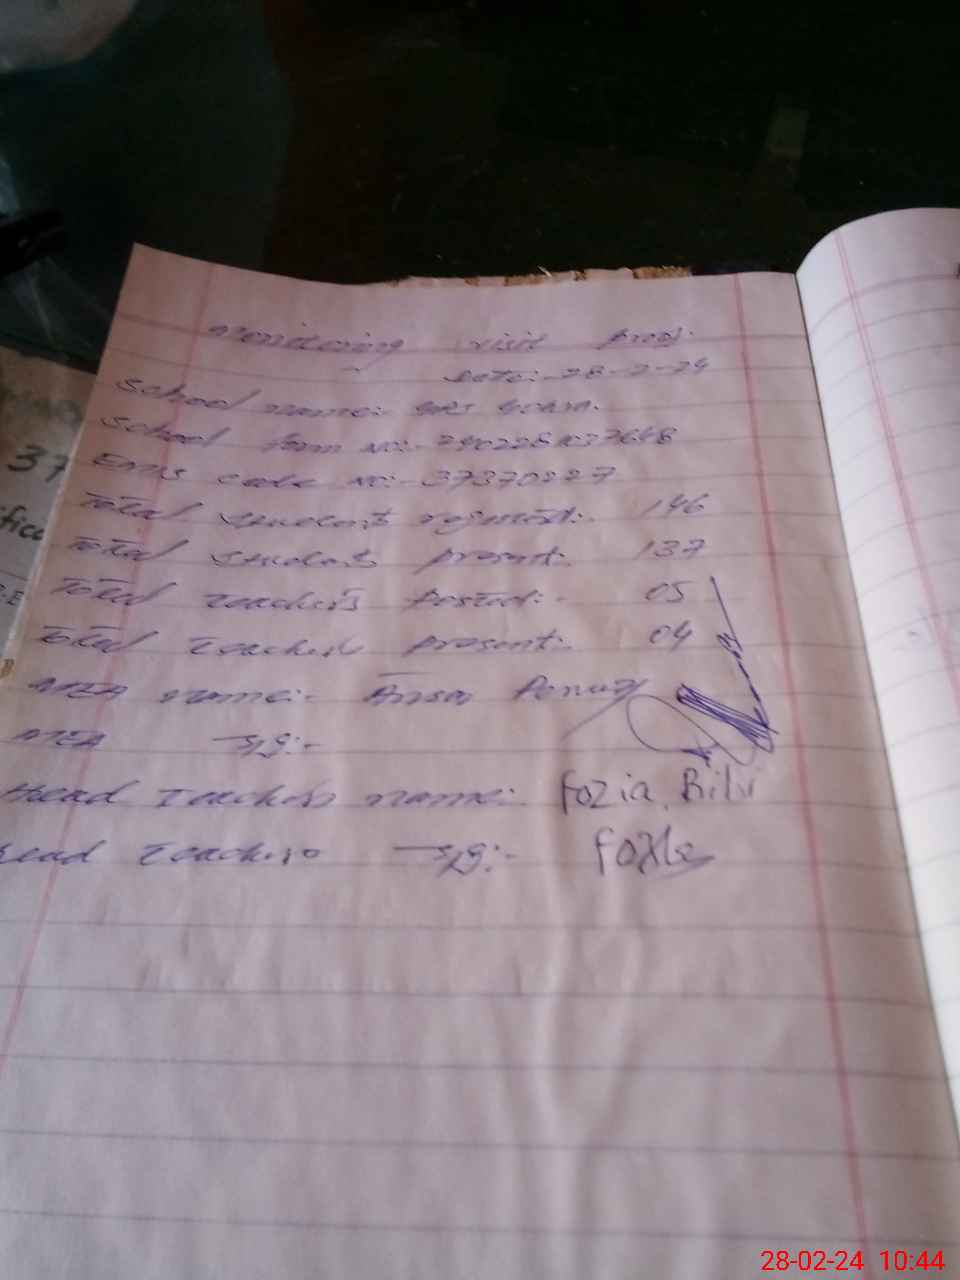 Monitoring visit proof.
Date:- 28-2-24
School name:-
School form No:-
EMIS code No:- 37370227
Total students registered:- 146
Total students present:- 137
Total teachers posted:- 05
Total teachers present:- 04
MEA name:- Ansar
MEA sig:-
Head Teachers name:- Fozia Bibi
Head Teachers sig:-
37
ificat
28-02-24 10:44